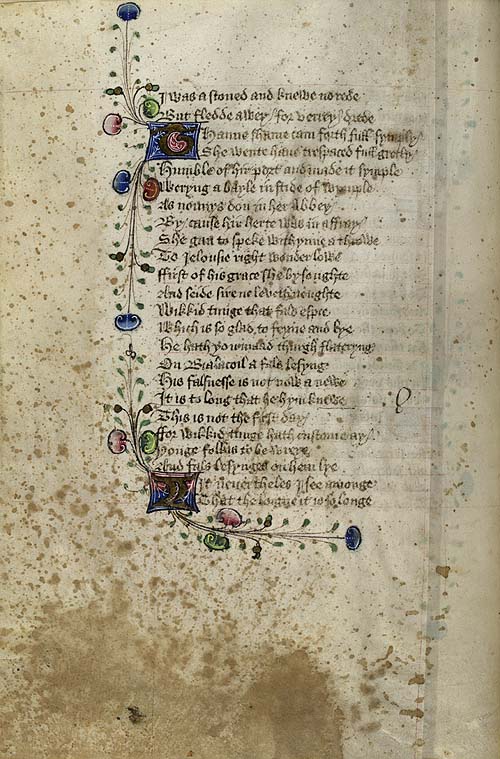 I was a stoned and knewe no rede
But fledde awey for verrey drede
Thanne shame cam forth full symply
She wente have trespaced full gretly
Humble of hir port and made it symple
Weryng a vayle in stide of wymple
As nonnys don in her Abbey
By cause hir herte was in affray
She gan to speke withynne a throwe
To Jelousie right wonder lowe
ffirst of his grace she bysoughte
And seide sire ne leveth noughte
Wikkid tunge that fals espie
Which is so glad to feyne and lye
He hath you maad thurgh flateryng
On Bialacoil a fals lesyng
His falsnesse is not now a newe
It is to long that he hym knewe
This is not the first day
ffor wikkid tunge hath custome ay
yonge folkis to bewreye
And fals lesynges on hem lye
Yit nevertheles I see amonge
That the loigne it is so longe